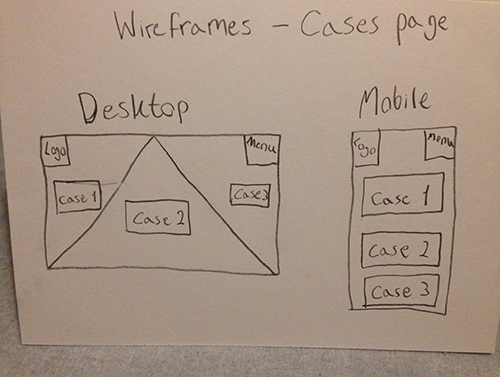 Wireframes - Cases page
Desktop
Logo
Menu
Case 1
Case 2
Case 3
Mobile
Logo
Menu
Case 1
Case 2
Case 3